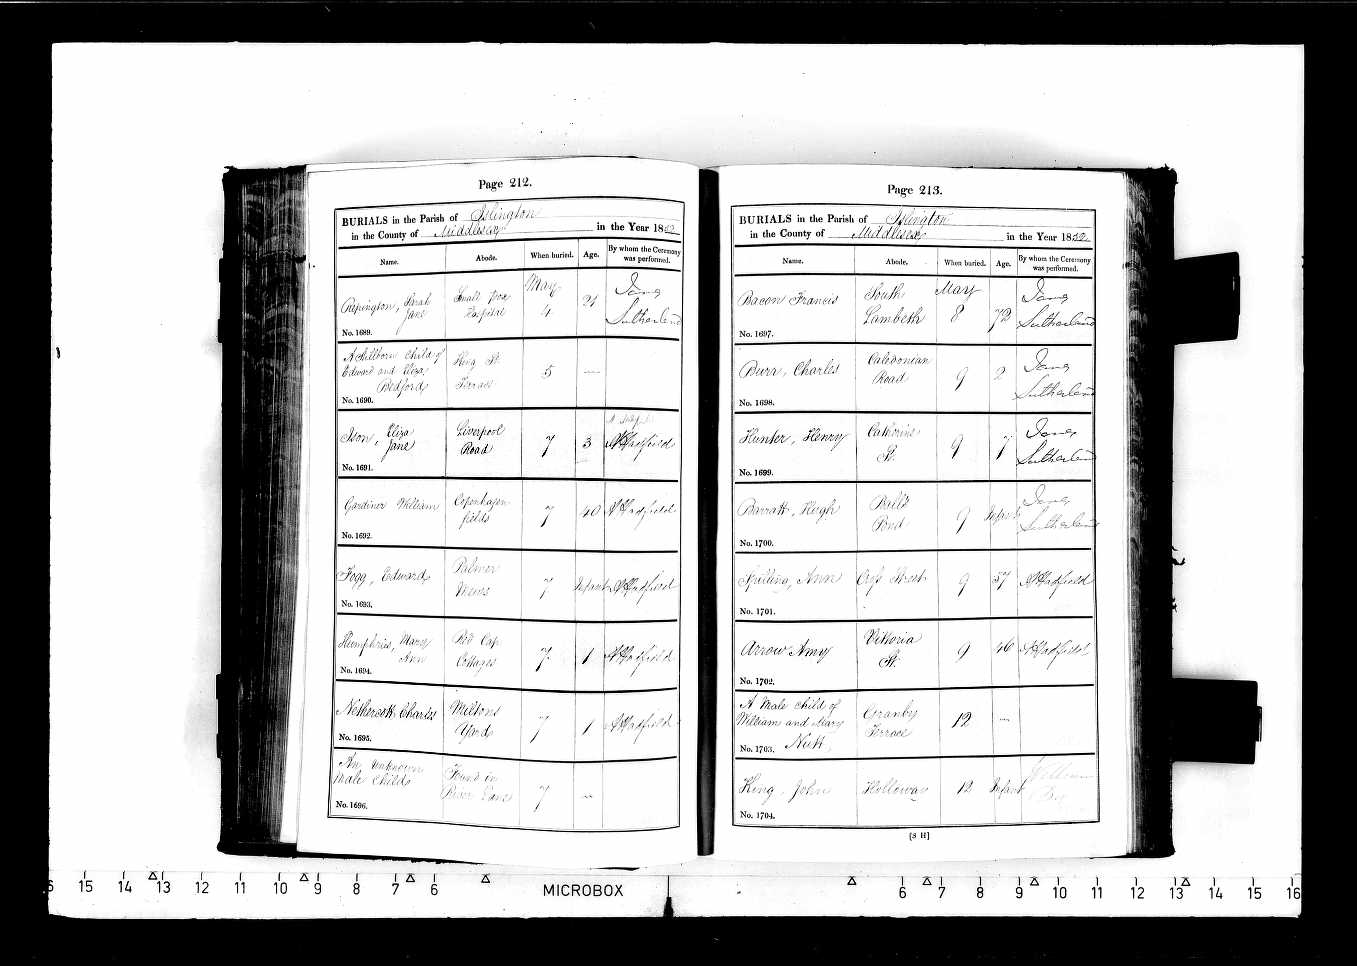 Page 212.
BURIALS in the Parish of Islington
in the County of Middlesex in the Year 1852
Name. Abode. When buried. Age. By whom the Ceremony was performed.
Repington, Sarah Jane
Small Pox Hospital
May 4
Sutherland
No. 1689.
A Stillborn Child of
Edward and Eliza
Bedford
King St.
Terrace
5
—
No. 1690.
Ison, Eliza Jane
Liverpool
Road
7
3
Hadfield
No. 1691.
Gardiner William
Copenhagen
fields
7
40
Hadfield
No. 1692.
Fogg, Edward
Palmer
Mews
7
Infant
Hadfield
No. 1693.
Humphries, Mary
Ann
Red Cap
Cottages
7
1
Hadfield
No. 1694.
Nethercott Charles
Miltons
Yard
7
1
Hadfield
No. 1695.
An unknown
Male Child
Found in
Lane
7
—
No. 1696.
Page 213.
BURIALS in the Parish of Islington
in the County of Middlesex in the Year 1852
Name. Abode. When buried. Age. By whom the Ceremony was performed.
Bacon Francis
South
Lambeth
May
8
72
Sutherland
No. 1697.
Charles
Caledonian
Road
9
2
Sutherland
No. 1698.
Hunter, Henry
Catherine
St.
9
7
Sutherland
No. 1699.
Barratt, Hugh
Ball's
Pond
9
Infant
Sutherland
No. 1700.
Spilling, Ann
Cross Street
9
57
Hadfield
No. 1701.
Arrow Amy
Vittoria
St.
9
46
Hadfield
No. 1702.
A Male child of
William and Mary
Nutt
Granby
Terrace
12
—
No. 1703.
King, John
Holloway
12
Infant
William
No. 1704.
[3 H]
15 14 13 12 11 10 9 8 7 6 MICROBOX 6 7 8 9 10 11 12 13 14 15 16